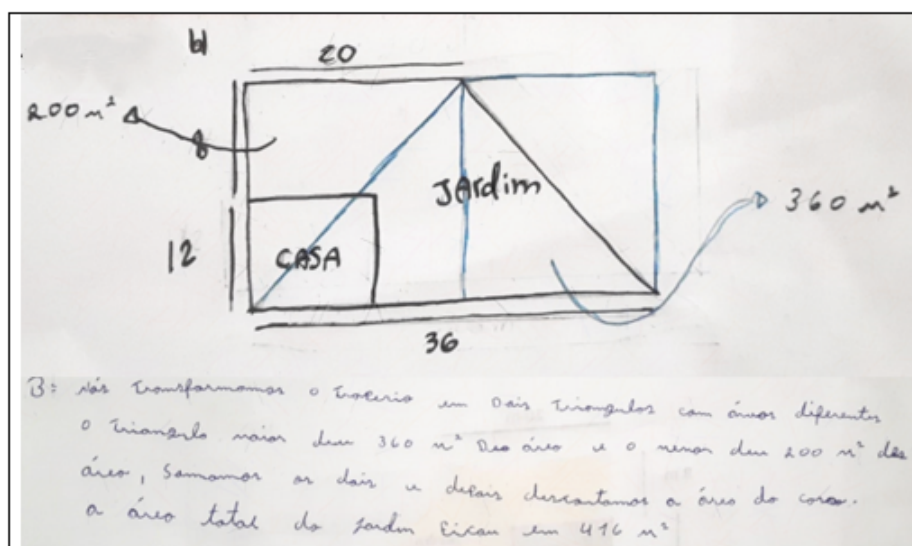 b)
20
200 m²
JARdim
360 m²
12
CASA
36
B: Nós transformamos o trapezio em Dois triangulos com áreas diferentes
o triangulo maior deu 360 m² Dea área e o menor deu 200 m² dea
área, Somamos os dois e depois descontamos a área da casa.
a área total do jardim ficou em 416 m²